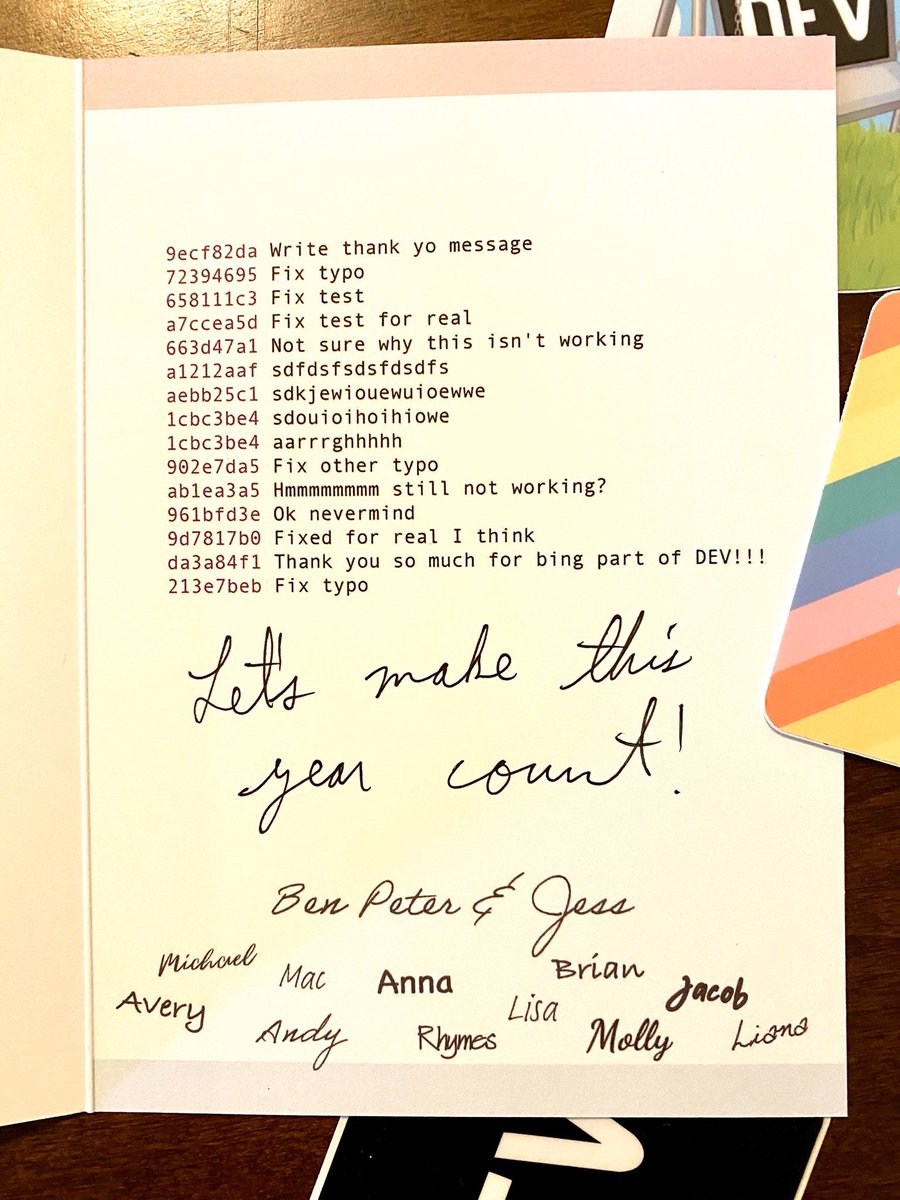 DEV
9ecf82da Write thank yo message
72394695 Fix typo
658111c3 Fix test
a7ccea5d Fix test for real
663d47a1 Not sure why this isn't working
a1212aaf sdfdsfsdsfdsdfs
aebb25c1 sdkjewiouewuioewwe
1cbc3be4 sdouioihoihiowe
1cbc3be4 aarrrghhhhh
902e7da5 Fix other typo
ab1ea3a5 Hmmmmmmmm still not working?
961bfd3e Ok nevermind
9d7817b0 Fixed for real I think
da3a84f1 Thank you so much for bing part of DEV!!!
213e7beb Fix typo
Let's make this
year count!
Ben Peter & Jess
Michael Mac Anna Brian Jacob
Avery Andy Rhymes Lisa Molly Liana